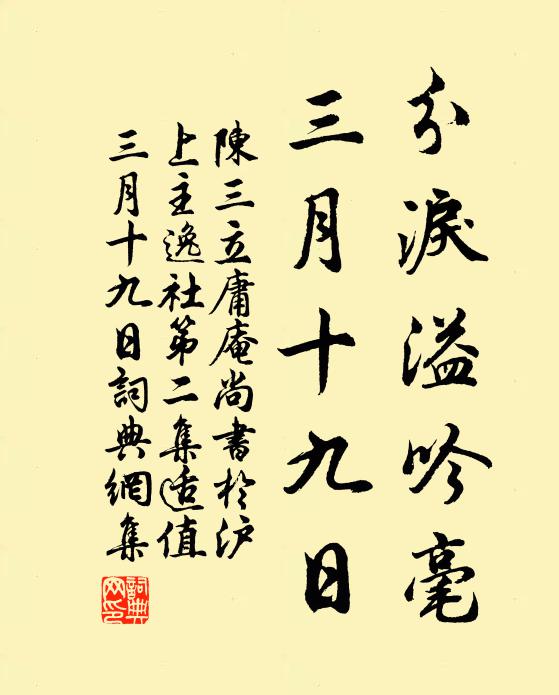 分淚溢吟毫
三月十九日
陳三立庸庵尚書於沪
上主逸社第二集适值
三月十九日詞典網集
詞典
网印